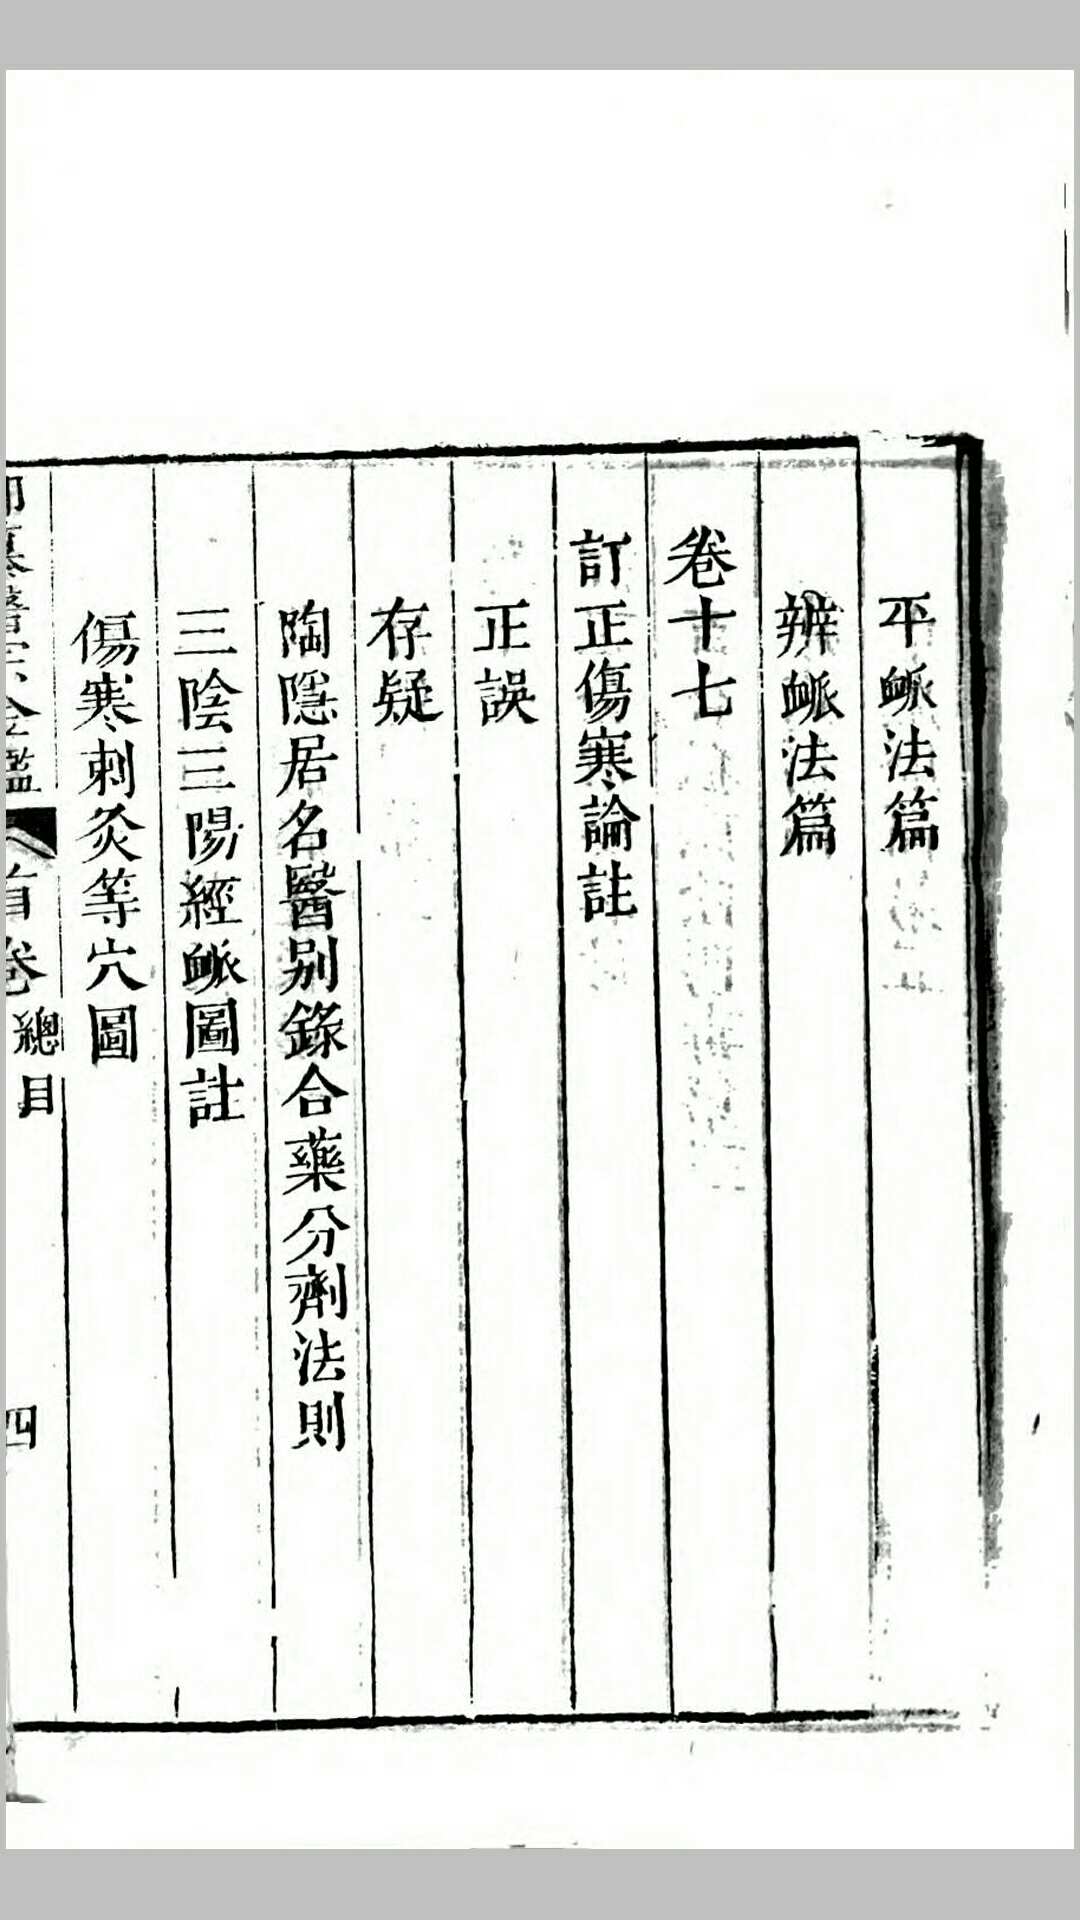 平脈法篇
辨脈法篇
卷十七
訂正傷寒論註
正誤
存疑
陶隱居名醫別錄合藥分劑法則
三陰三陽經脈圖註
傷寒刺灸等穴圖
首卷 總目 四